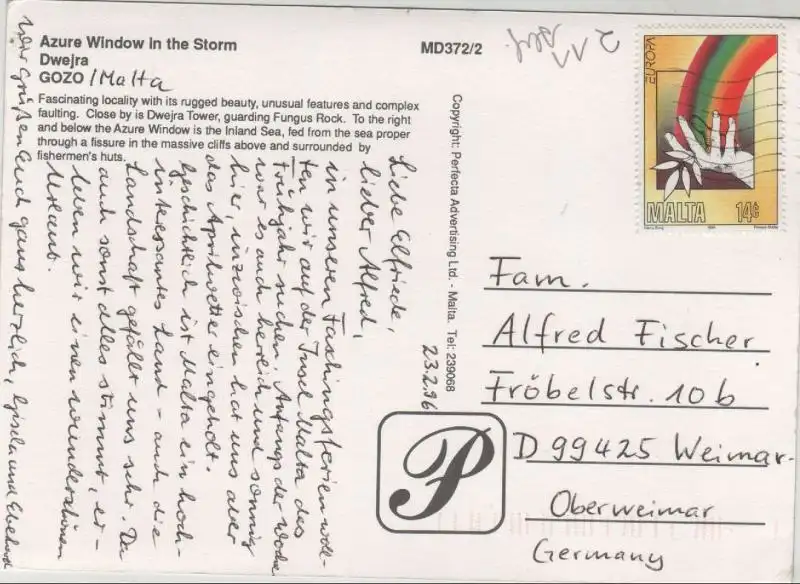 Azure Window in the Storm
Dwejra
GOZO / Malta
MD372/2
Fascinating locality with its rugged beauty, unusual features and complex
faulting. Close by is Dwejra Tower, guarding Fungus Rock. To the right
and below the Azure Window is the Inland Sea, fed from the sea proper
through a fissure in the massive cliffs above and surrounded by
fishermen's huts.
Copyright: Perfecta Advertising Ltd. - Malta. Tel: 239068
23.2.96
Liebe Elfriede,
lieber Alfred,
in unseren Faschingsferien woll-
ten wir auf der Insel Malta das
Frühjahr suchen. Anfangs der Woche
war es auch herrlich und sonnig
hier, inzwischen hat uns aber
das Aprilwetter eingeholt.
Geschichtlich ist Malta ein hoch-
interessantes Land - auch die
Landschaft gefällt uns sehr. Da
auch sonst alles stimmt, er-
leben wir einen wunderschönen
Urlaub.
Wir grüßen Euch ganz herzlich, Gisela und Eberhard
EUROPA
MALTA 14c
Fam.
Alfred Fischer
Fröbelstr. 10b
D 99425 Weimar-
Oberweimar
Germany
P